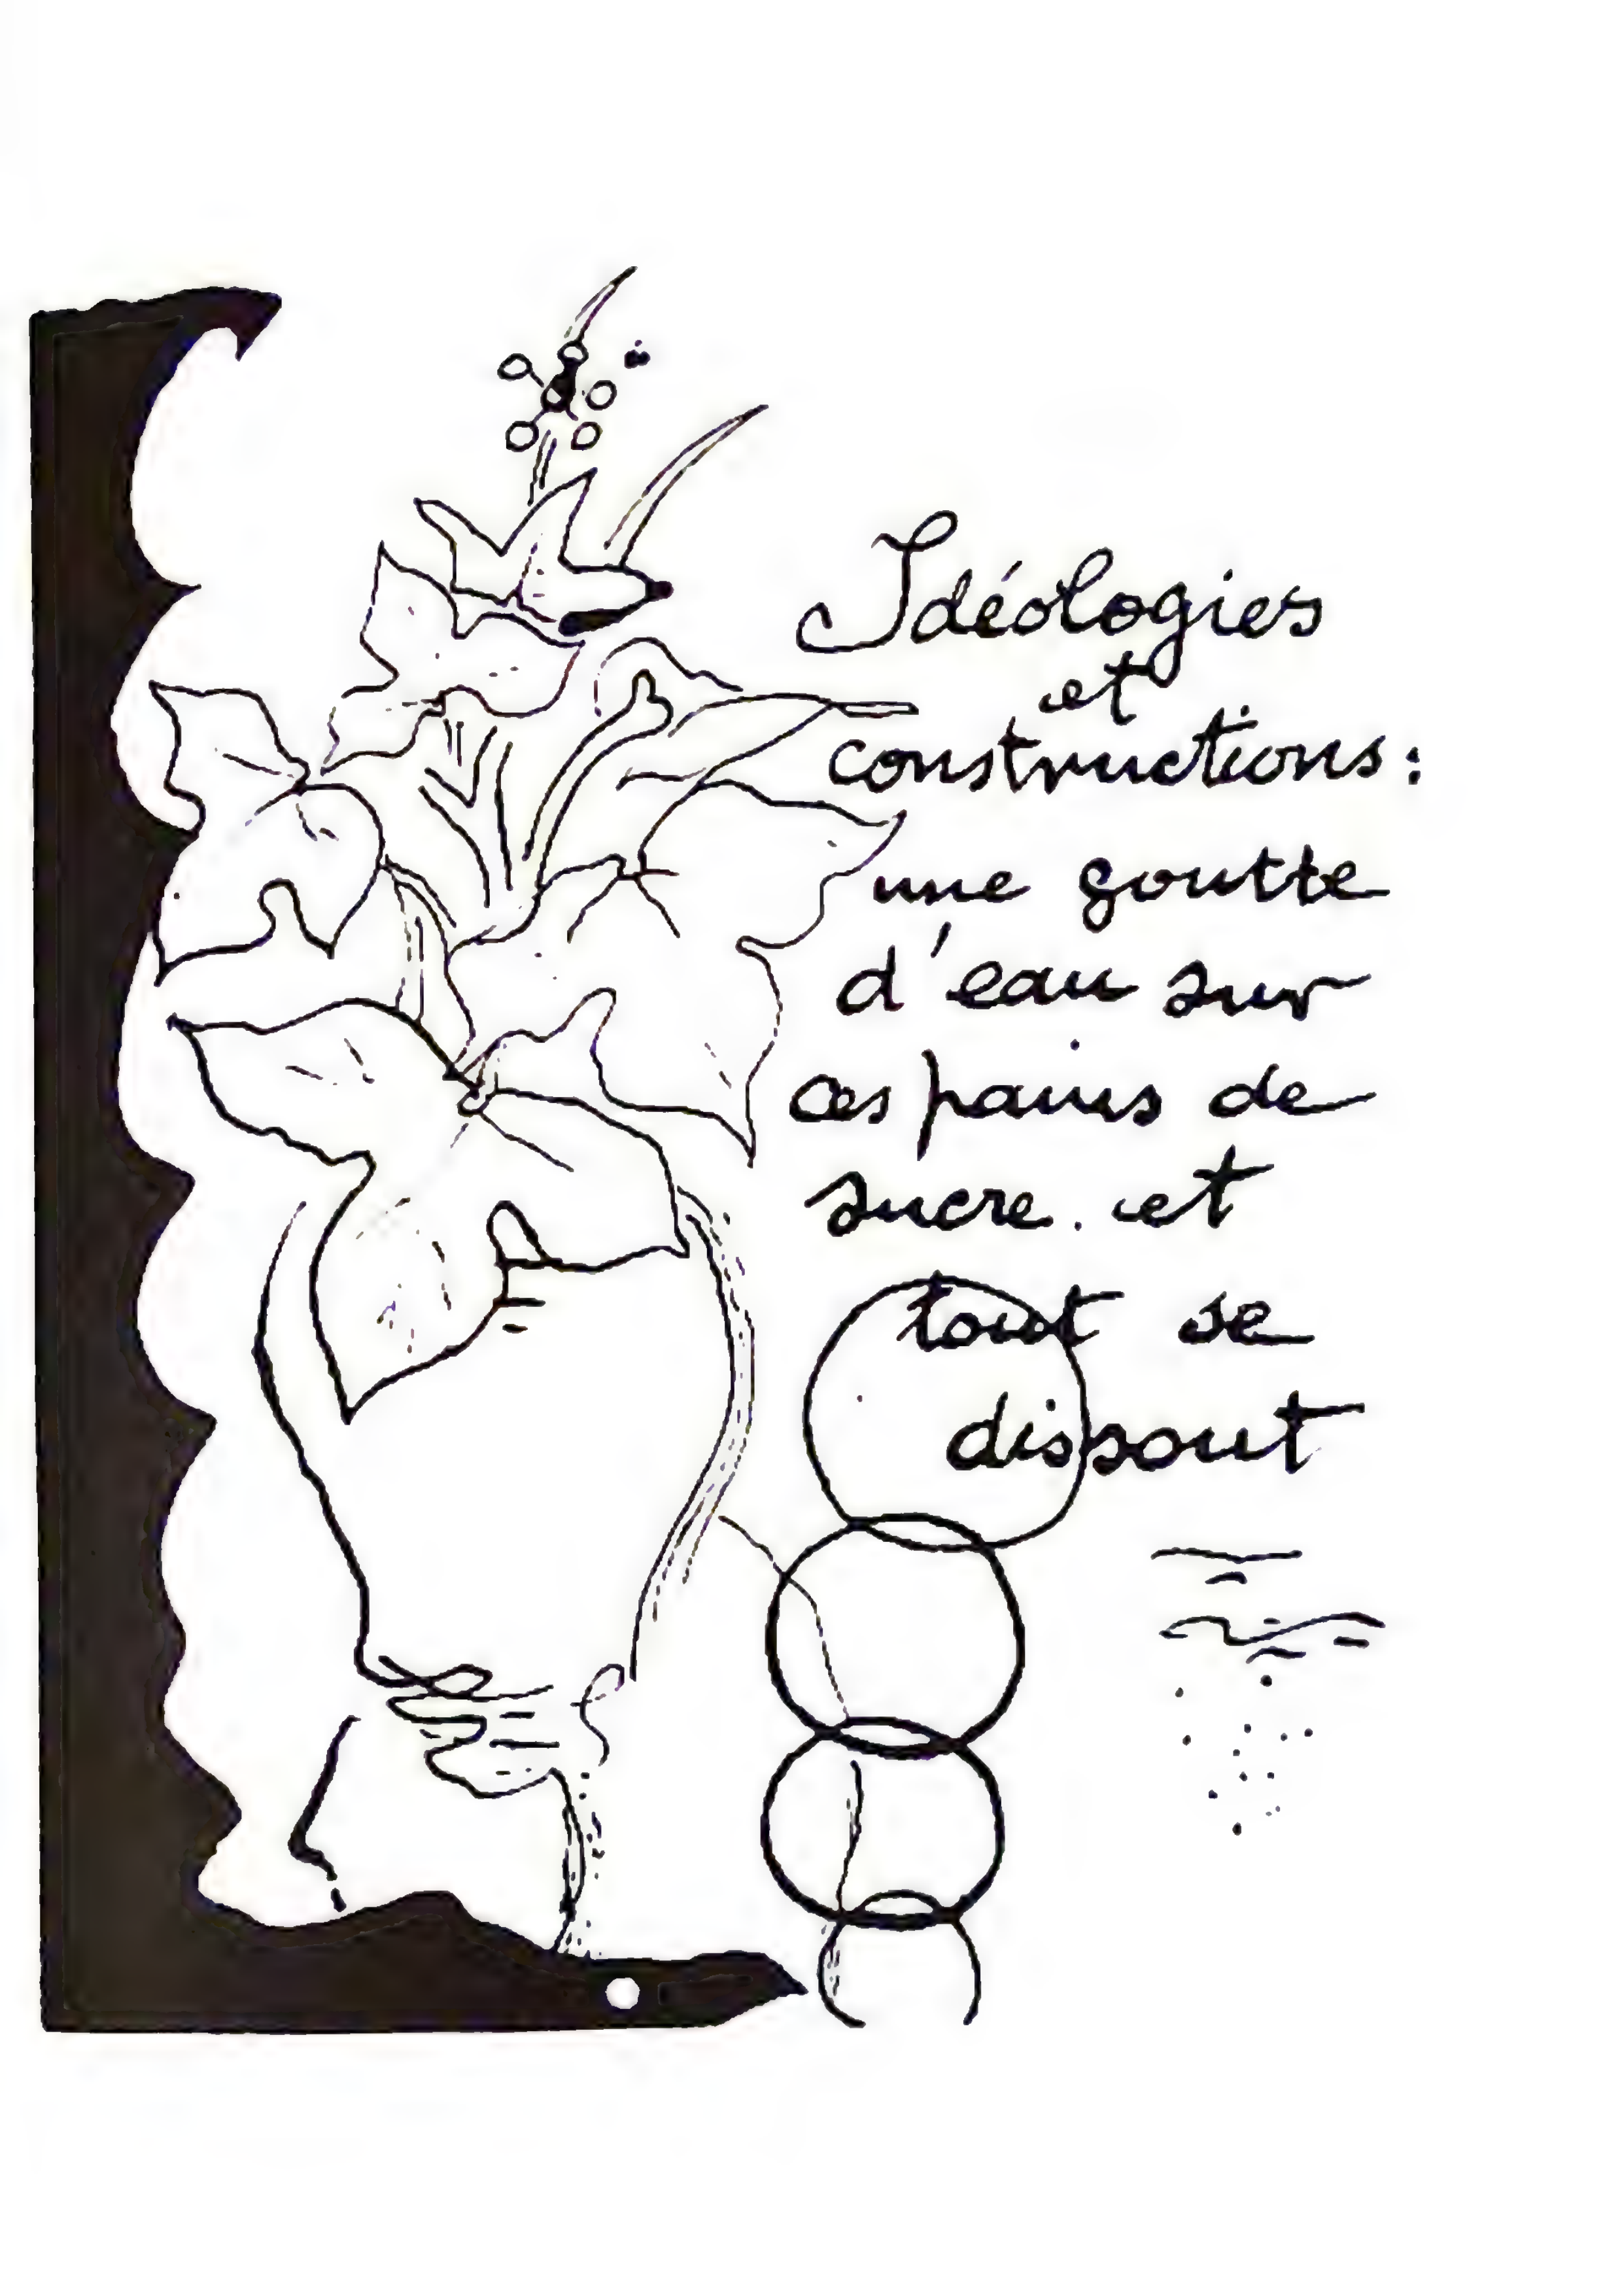 Idéologies
et
constructions:
une goutte
d'eau sur
ces pains de
sucre. et
tout se
dissout